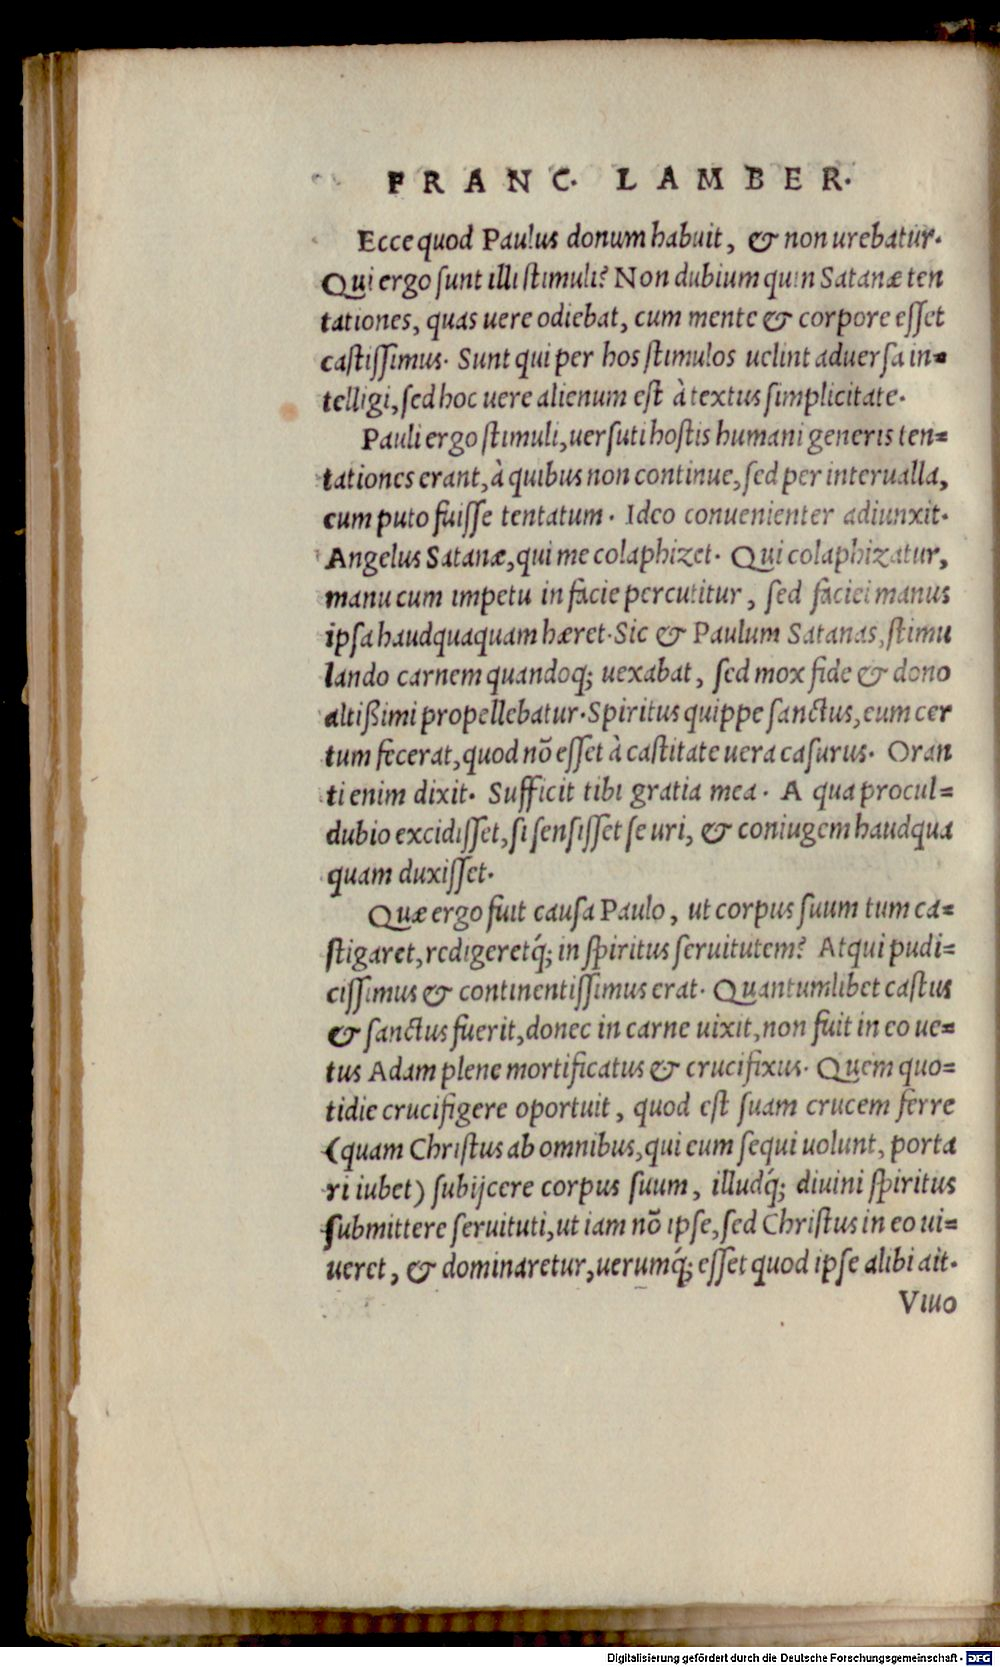 FRANC. LAMBER.
Ecce quod Paulus donum habuit, & non urebatur.
Qui ergo sunt illi stimuli? Non dubium quin Satanæ ten
tationes, quas uere odiebat, cum mente & corpore esset
castissimus. Sunt qui per hos stimulos uelint aduersa in=
telligi, sed hoc uere alienum est à textus simplicitate.
Pauli ergo stimuli, uersuti hostis humani generis ten=
tationes erant, à quibus non continue, sed per interualla,
eum puto fuisse tentatum. Ideo conuenienter adiunxit.
Angelus Satanæ, qui me colaphizet. Qui colaphizatur,
manu cum impetu in facie percutitur, sed faciei manus
ipsa haudquaquam hæret. Sic & Paulum Satanas, stimu
lando carnem quandoq; uexabat, sed mox fide & dono
altißimi propellebatur. Spiritus quippe sanctus, eum cer
tum fecerat, quod nõ esset à castitate uera casurus. Oran
ti enim dixit. Sufficit tibi gratia mea. A qua procul=
dubio excidisset, si sensisset se uri, & coniugem haudqua
quam duxisset.
Quæ ergo fuit causa Paulo, ut corpus suum tum ca=
stigaret, redigeretq́; in spiritus seruitutem? Atqui pudi=
cissimus & continentissimus erat. Quantumlibet castus
& sanctus fuerit, donec in carne uixit, non fuit in eo ue=
tus Adam plene mortificatus & crucifixus. Quem quo=
tidie crucifigere oportuit, quod est suam crucem ferre
(quam Christus ab omnibus, qui eum sequi uolunt, porta
ri iubet) subijcere corpus suum, illudq́; diuini spiritus
submittere seruituti, ut iam nõ ipse, sed Christus in eo ui=
ueret, & dominaretur, uerumq́; esset quod ipse alibi ait.
Viuo
Digitalisierung gefördert durch die Deutsche Forschungsgemeinschaft - DFG